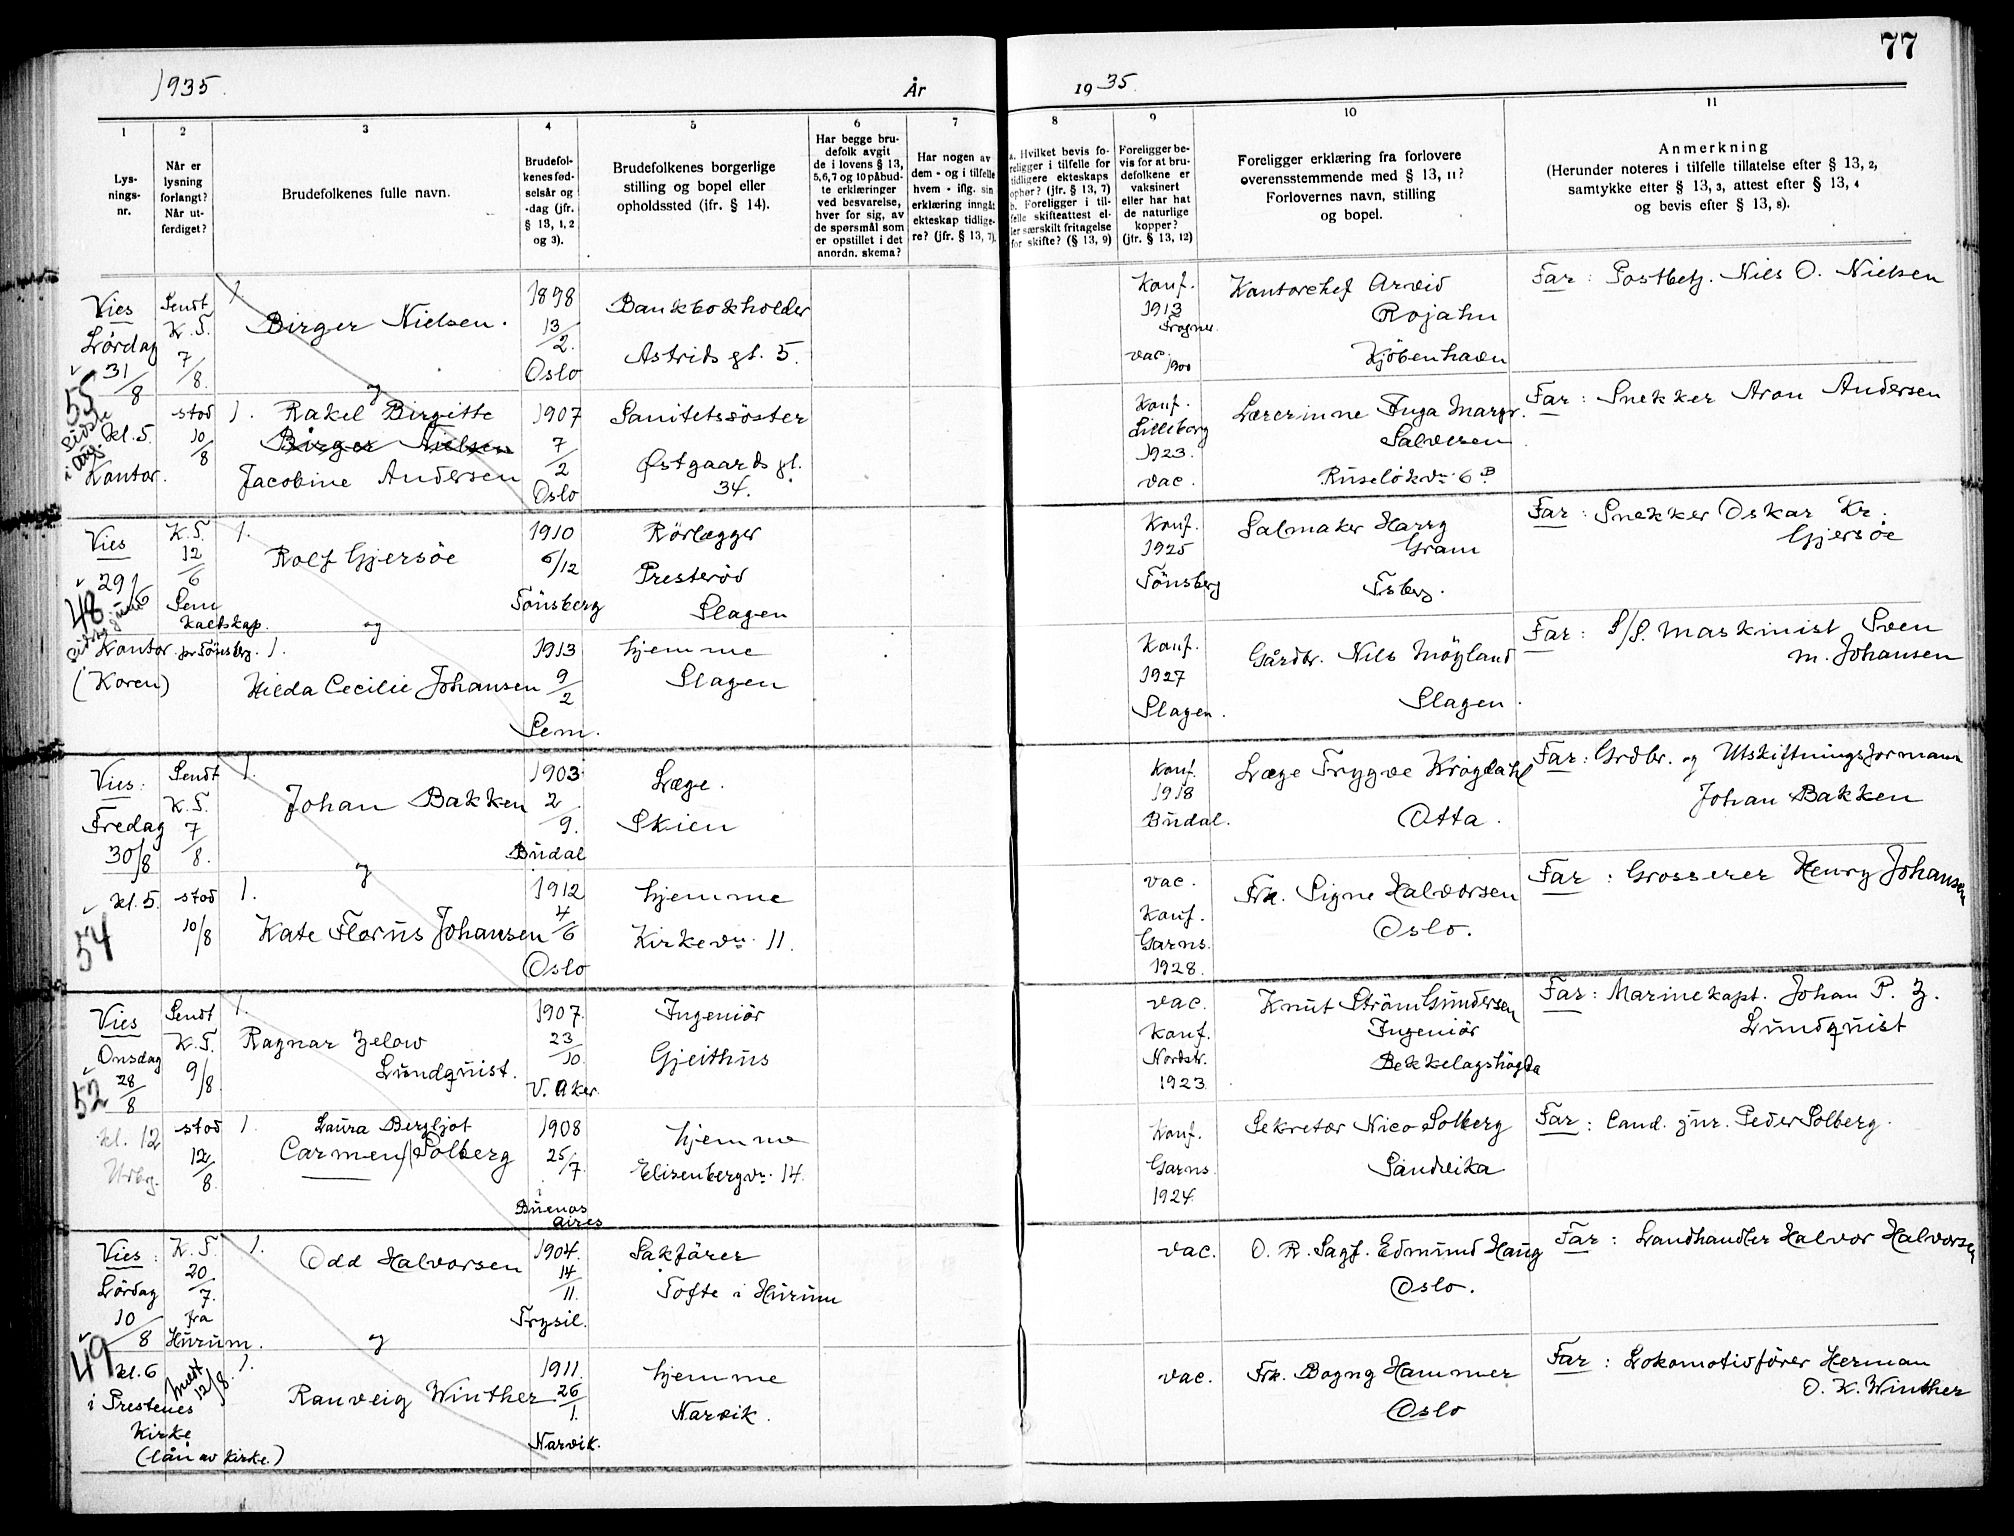 77
1935.
År
1935.
1
2
3
4
5
6
7
8
9
10
11
Lys-
nings-
nr.
Når er
lysning
forlangt?
Når ut-
ferdiget?
Brudefolkenes fulle navn.
Brudefol-
kenes fød-
selsår og
-dag (jfr.
§ 13, 1, 2
og 3).
Brudefolkenes borgerlige
stilling og bopel eller
opholdssted (jfr. § 14).
Har begge bru-
defolk avgit
de i lovens § 13,
5, 6, 7 og 10 påbud-
te erklæringer
ved besvarelse,
hver for sig, av
de spørsmål som
er opstillet i det
anordn. skema?
Har nogen av
dem - og i tilfelle
hvem - iflg. sin
erklæring inngåt
ekteskap tidlige-
re? (jfr. § 13, 7).
a. Hvilket bevis fo-
religger i tilfelle for
tidligere ekteskaps
ophør? (jfr. § 13, 7)
b. Foreligger i til-
felle skifteattest el-
ler særskilt fritagelse
for skifte? (§ 13, 9)
Foreligger be-
vis for at bru-
defolkene er
vaksinert
eller har hat
de naturlige
kopper?
(jfr. § 13, 12)
Foreligger erklæring fra forlovere
overensstemmende med § 13, 11?
Forlovernes navn, stilling
og bopel.
Anmerkning
(Herunder noteres i tilfelle tillatelse efter § 13, 2,
samtykke efter § 13, 3, attest efter § 13, 4
og bevis efter § 13, 8).
Vies
Lørdag
31/8
55
Sidste
i aug.
kl. 5.
Kontor.
Sendt
K.T.
7/8.
stod
10/8
1.
Birger Nielsen.
og
1. Rakel Birgitte
Birger Nielsen
Jacobine Andersen
1898
13/2.
Oslo
1907
7/2
Oslo
Bankbokholder
Astrids gt. 5.
Sanitetssöster
Østgaards gt.
34.
Konf.
1913
Frogner.
vac.
1900
Konf.
Lilleborg
1923.
vac.
Kontorchef Arvid
Rojahn
Kjöbenhavn
Lærerinne Inga Margr.
Salvesen.
Ruselökvn. 6 B
Far: Postbetj. Nils O. Nielsen
Far: Snekker Aron Andersen
Vies
29/6
48
sidste juni
Kontor
(Koren)
K.T.
12/6
Sem
kaldskap.
pr Tönsbg.
1.
Rolf Gjersöe
og
1.
Hilda Cecilie Johansen
1910
6/12
Tönsberg
1913
9/2
Sem.
Rörlegger
Presteröd
Slagen
hjemme
Slagen
Konf.
1925
Tönsberg
Konf.
1927
Slagen.
Salmaker Harry
Gram
Tsberg.
Gårdbr. Nils Möyland
Slagen.
Far: Snekker Oskar Kr.
Gjersöe
Far: S/S. Maskinist Sven
M. Johansen
Vies:
Fredag
30/8
kl. 5.
54
Sendt
K.T.
7/8.
stod
10/8
1.
Johan Bakken
og
1.
Kate Florus Johansen
1903
2/9.
Budal
1912
4/6
Oslo
Læge.
Skien
hjemme
Kirkevn. 11.
Konf.
1918
Budal.
vac.
Konf.
Garns.
1928.
Læge Trygve Krogdahl
Otta.
Frk. Signe Halvorsen
Oslo.
Far: Grdbr. og Utskiftningsformann
Johan Bakken
Far: Grosserer Henry Johansen
Vies
Onsdag
28/8
52
kl. 12
Urbg.
Sendt
K.T.
9/8.
stod
12/8.
1.
Ragnar Zelow
Lundquist.
1. Laura Bergljot
Carmen Solberg
1907
23/10.
V. Aker.
1908
25/7.
Buenos
Aires
Ingeniör
Gjeithus
hjemme
Elisenbergvn. 14.
vac.
Konf.
Nordstr.
1923.
Konf.
Garns.
1924.
Knut Ström Gundersen
Ingeniör
Bekkelagshögda
Sekretær Nico Solberg
Sandvika
Far: Marinekapt. Johan P. Z.
Lundquist
Far: Cand. jur. Peder Solberg.
Vies:
Lördag
10/8
49
kl. 6
i Prestenes
Kirke
(lån av kirke.)
K.T.
20/7.
fra
Hurum.
12/8.
1.
Odd Halvorsen
og
1.
Ranveig Winther
1904.
14/11.
Trysil.
1911.
26/1.
Narvik.
Sakförer
Tofte i Hurum
hjemme
Narvik.
vac.
vac.
O. R. Sagf. Edmund Haug
Oslo.
Frk. Bogny Hammer
Oslo
Far: Landhandler Halvor Halvorsen
Far: Lokomotivförer Herman
O. K. Winther